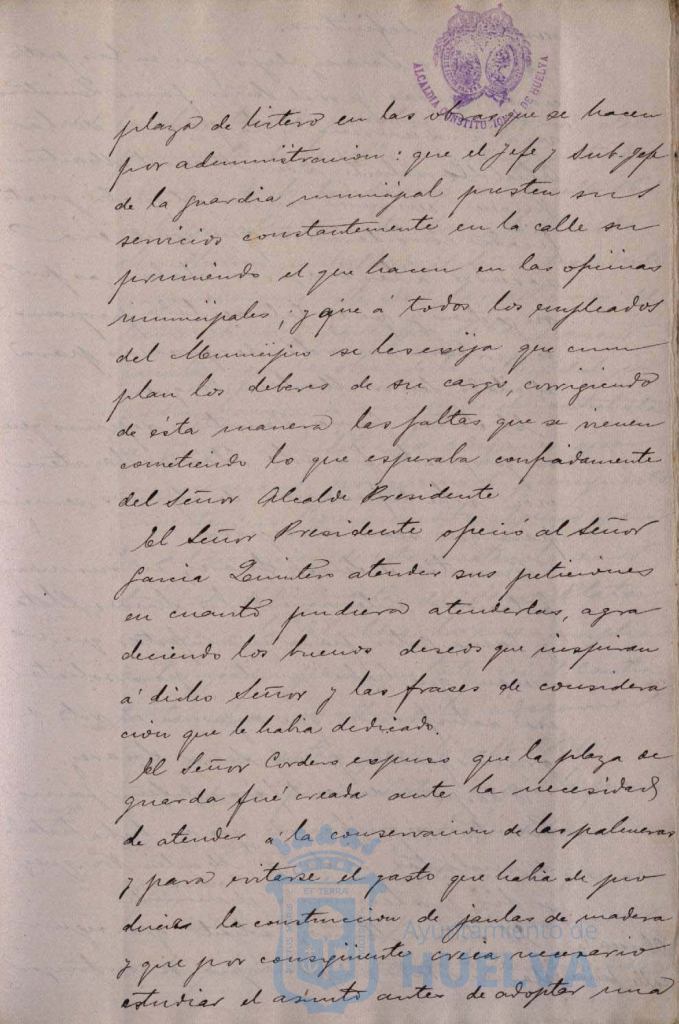 ALCALDIA CONSTITUCIONAL DE HUELVA
plaza de listero en las obras que se hacen
por administracion: que el Jefe y Sub-Jefe
de la guardia municipal presten sus
servicios constantemente en la calle su
primiendo el que hacen en las oficinas
municipales; y que á todos los empleados
del Municipio se les exija que cum
plan los deberes de su cargo, corrigiendo
de ésta manera las faltas que se vienen
cometiendo lo que esperaba confiadamente
del Señor Alcalde Presidente
El Señor Presidente ofreció al Señor
Garcia Quintero atender sus peticiones
en cuanto pudiera atenderlas, agra
deciendo los buenos deseos que inspiran
á dicho Señor y las frases de considera
cion que le habia dedicado.
El Señor Cordero expuso que la plaza de
guarda fué creada ante la necesidad
de atender á la conservacion de las palmeras
y para evitarse el gasto que habia de pro
ducir la construccion de jaulas de madera
y que por consiguiente creia necesario
estudiar el asunto antes de adoptar una
Ayuntamiento de
HUELVA